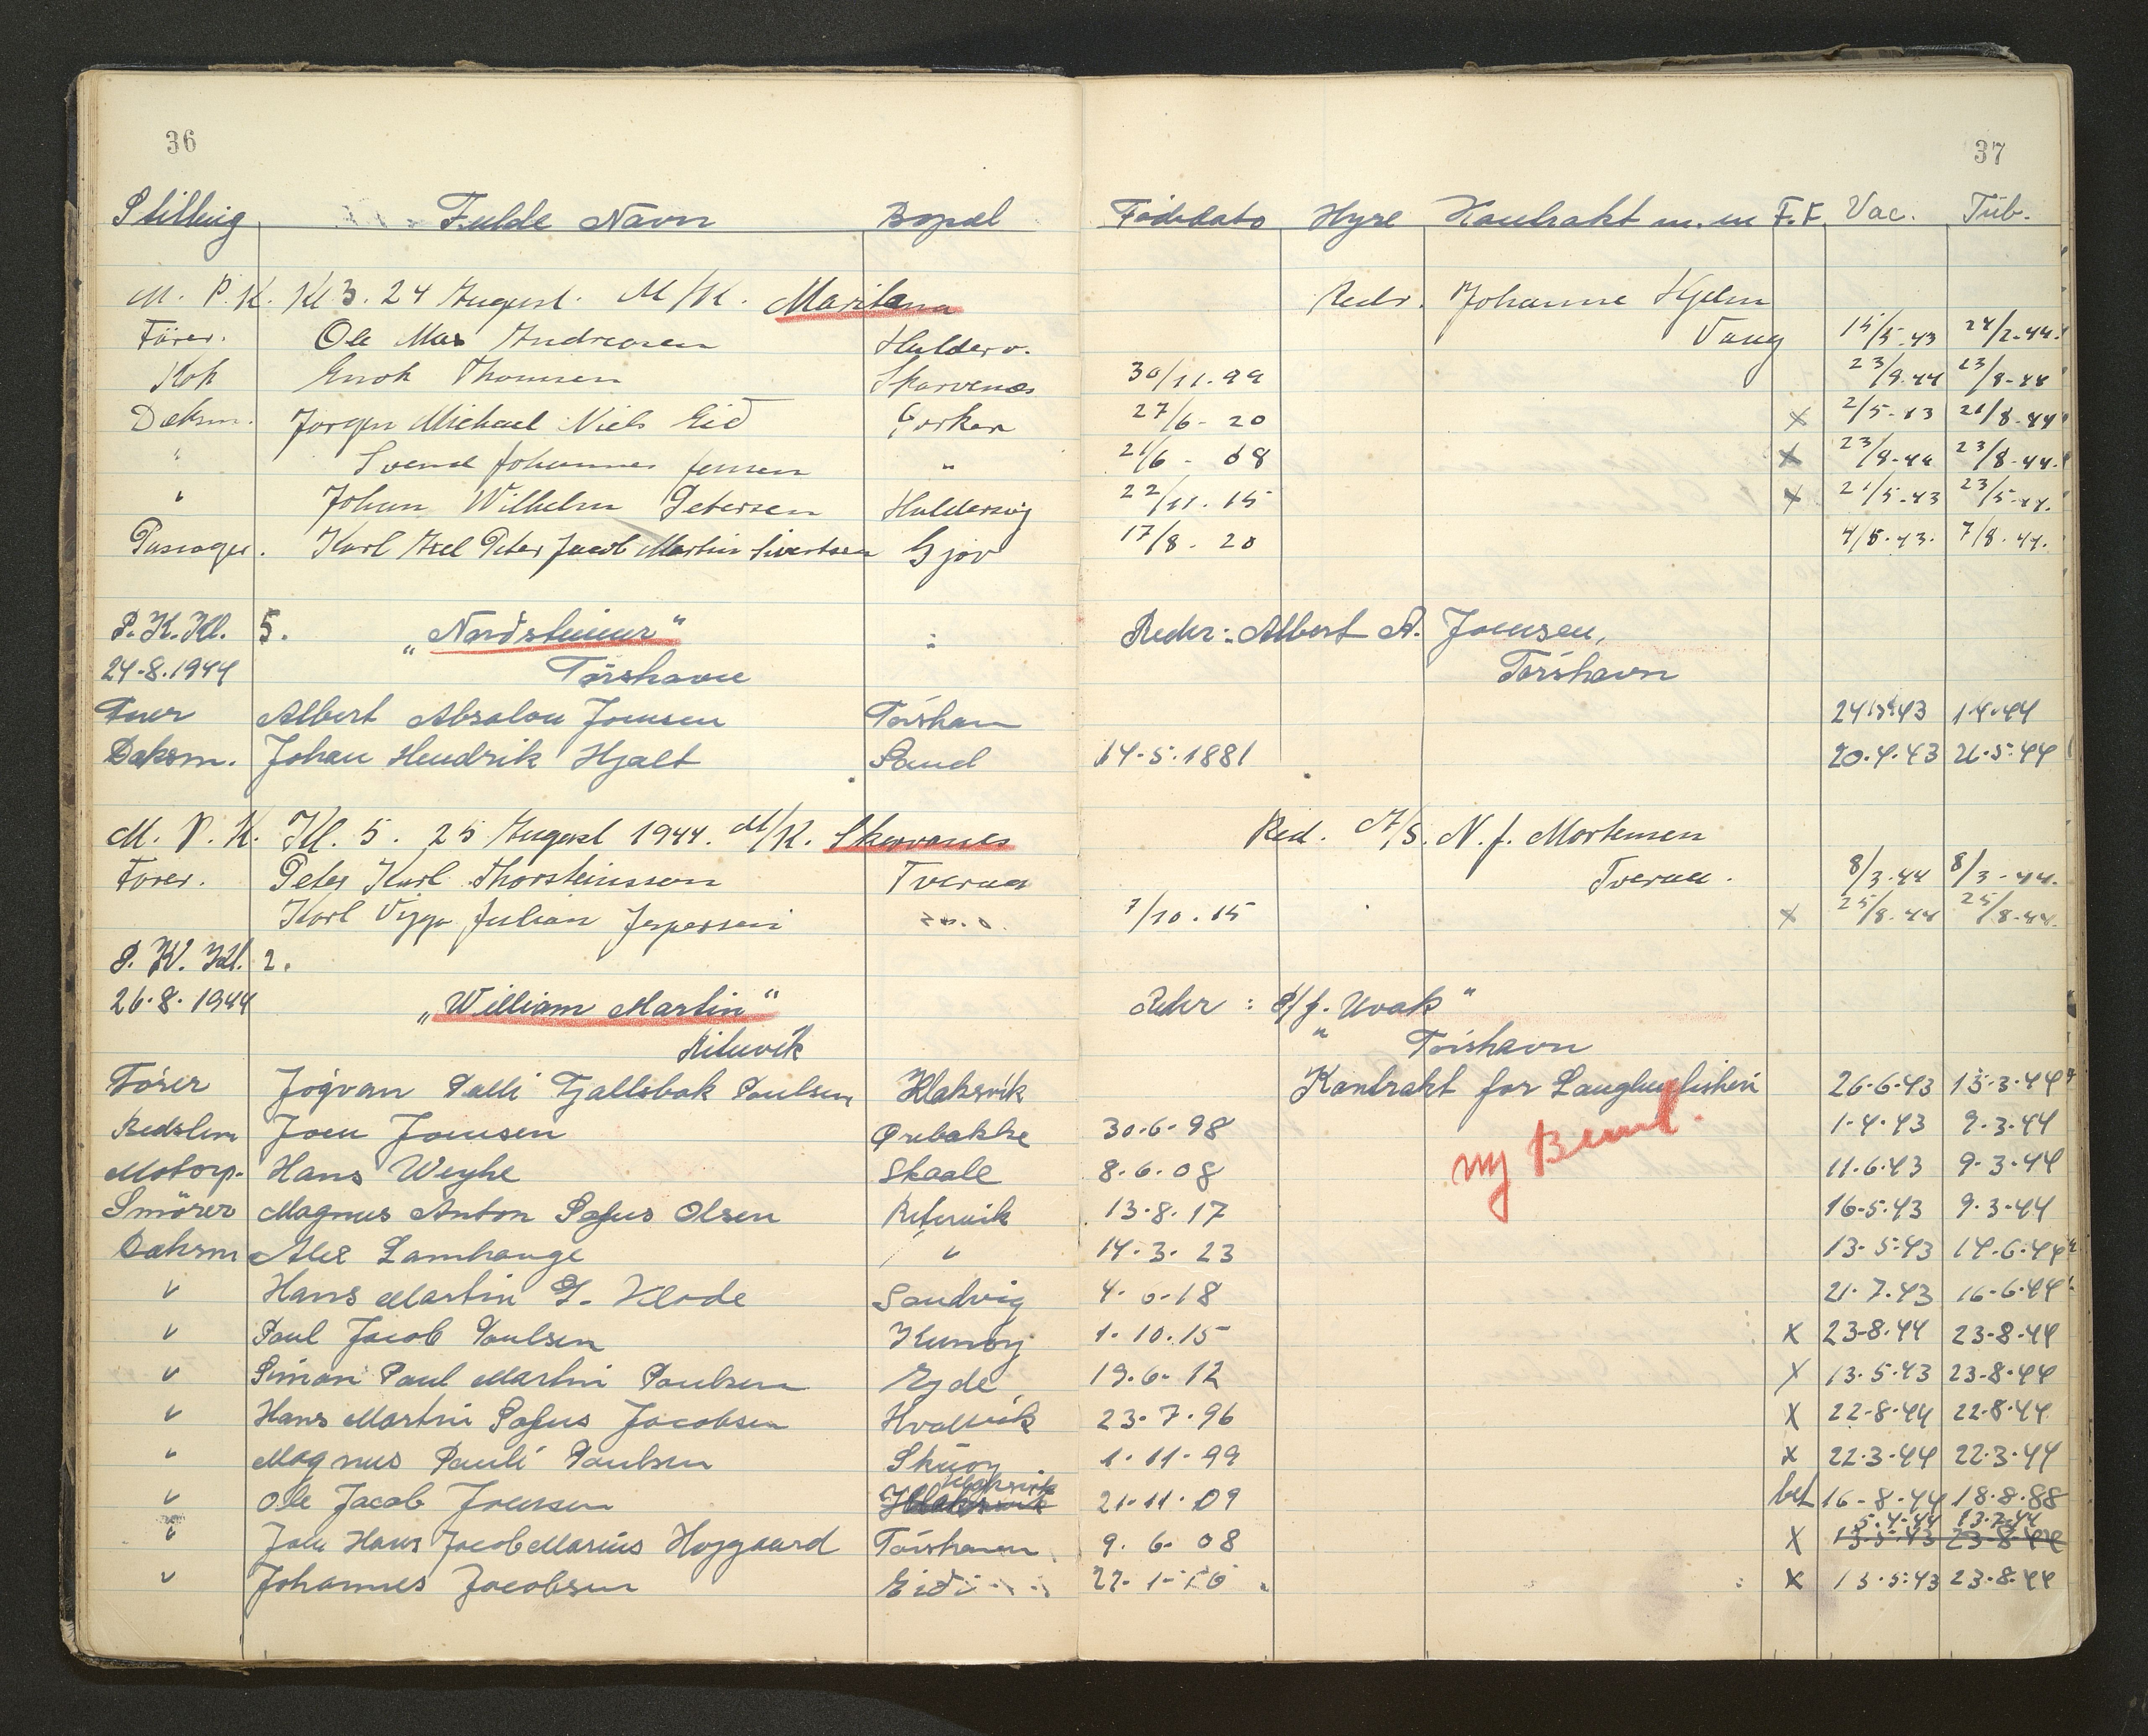 36
37
Stilling Fulde Navn Bopæl Födedato Hyre Kontrakt m. m F.F. Vac. Tub.
M. P. K. Kl 3. 24 August. M/K. Maritana Redr. Johanne Kjelm
Förer. Ole Mas Andreasen Hulderv. Vaag 15/5.43 24/2-44.
Kok Enok Thomsen Skarvenæs 30/11.99 23/9.44 23/8-44
Dæksm. Jørgen Michael Niels Eid 27/6- 20 x 2/5-43 21/8-44
" Svend Johannes Jensen " 21/6 - 08 x 23/8-44 23/8-44.
" Johan Wilhelm Petersen Huldersvig 22/11. 15 x 21/5-43 23/5-44.
Passager. Karl Axel Peter Jacob Martin Sivertsen Gjov 17/8. 20 4/5.43. 7/8.44.
P. K. Kl. 5. „Nordstjernen“ Redr: Albert A. Joensen,
24-8.1944 Tórshavn Tórshavn
Albert Absalon Joensen Tórshavn 24.43 1.4.44
Dæksm. Johan Hendrik Hjalt Sand 14-5.1881 20.4.43 21.5.44
M. P. K. Kl. 5. 25 August 1944. M/K. Skarvanes Red. A/S. N. J. Mortensen
Förer. Peter Karl Thorsteinsson Tveraa Tveraa. 8/3.44 8/3-44.
Karl Viggo Julian Jespersen 7/10.15 x 25/8.44 25/8.44.
P. K. Kl. 2.
26.8.1944 „William Martin“ Redr: P/f. Uvak"
Rituvík " Tórshavn
Förer Jógvan Palli Fjallsbak Poulsen Klaksvík Kontrakt for Langlinefisheri 26.6.43 13.3.44
Bedstem Joen Joensen Ørebakke 30.6.98 ny 1.4.43 9.3.44
Motorp. Hans Weyhe Skaale 8.6.08 11.6.43 9.3.44
Smörer Magnus Anton Sofus Olsen Rituvik 13.8.17 16-5.43 9.3.44
Dæksm Alex Lamhauge " 14.3.23 13-5.43 14.6.44
" Hans Martin Klode Sandvig 4.6.18 21.7.43 16.6.44
" Paul Jacob Poulsen Kunoy 1.10.15 x 23-8.44 23-8.44
" Simon Paul Martin Poulsen Ejde 19.6.12 x 13.5.43 23-8.44
" Hans Martin Sofus Jacobsen Hvalvik 23.7.96 x 22-8.44 22.8.44
" Magnus Pauli Poulsen Skúoy 1.11.99 x 22.3.44 22.3.44
" Ole Jacob Joensen Klaksvik 21.11.09 bef 16-8.44 18.8.88
5.4.44 13.7.44
" Joen Hans Jacob Marius Hojgaard Tórshavn 9.6.08 x 13.5.43 23-8-44
" Johannes Jacobsen Eidi x 13.5.43 23.8.44